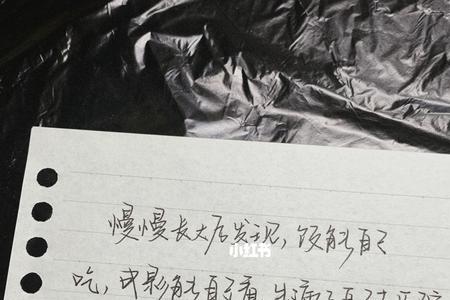 慢慢长大后发现,饭能自己
小红书
吃,电影能自己看,生病了自己